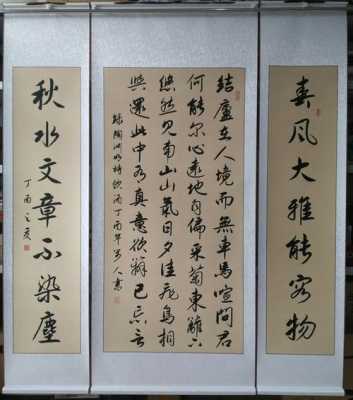 春风大雅能容物
結廬在人境而無車馬喧問君
何能尔心遠地自偏采菊東籬下
悠然見南山山氣日夕佳飛鳥相
與還此中有真意欲辯已忘言
録陶渊明詩飲酒丁酉年
秋水文章不染塵
丁酉之夏